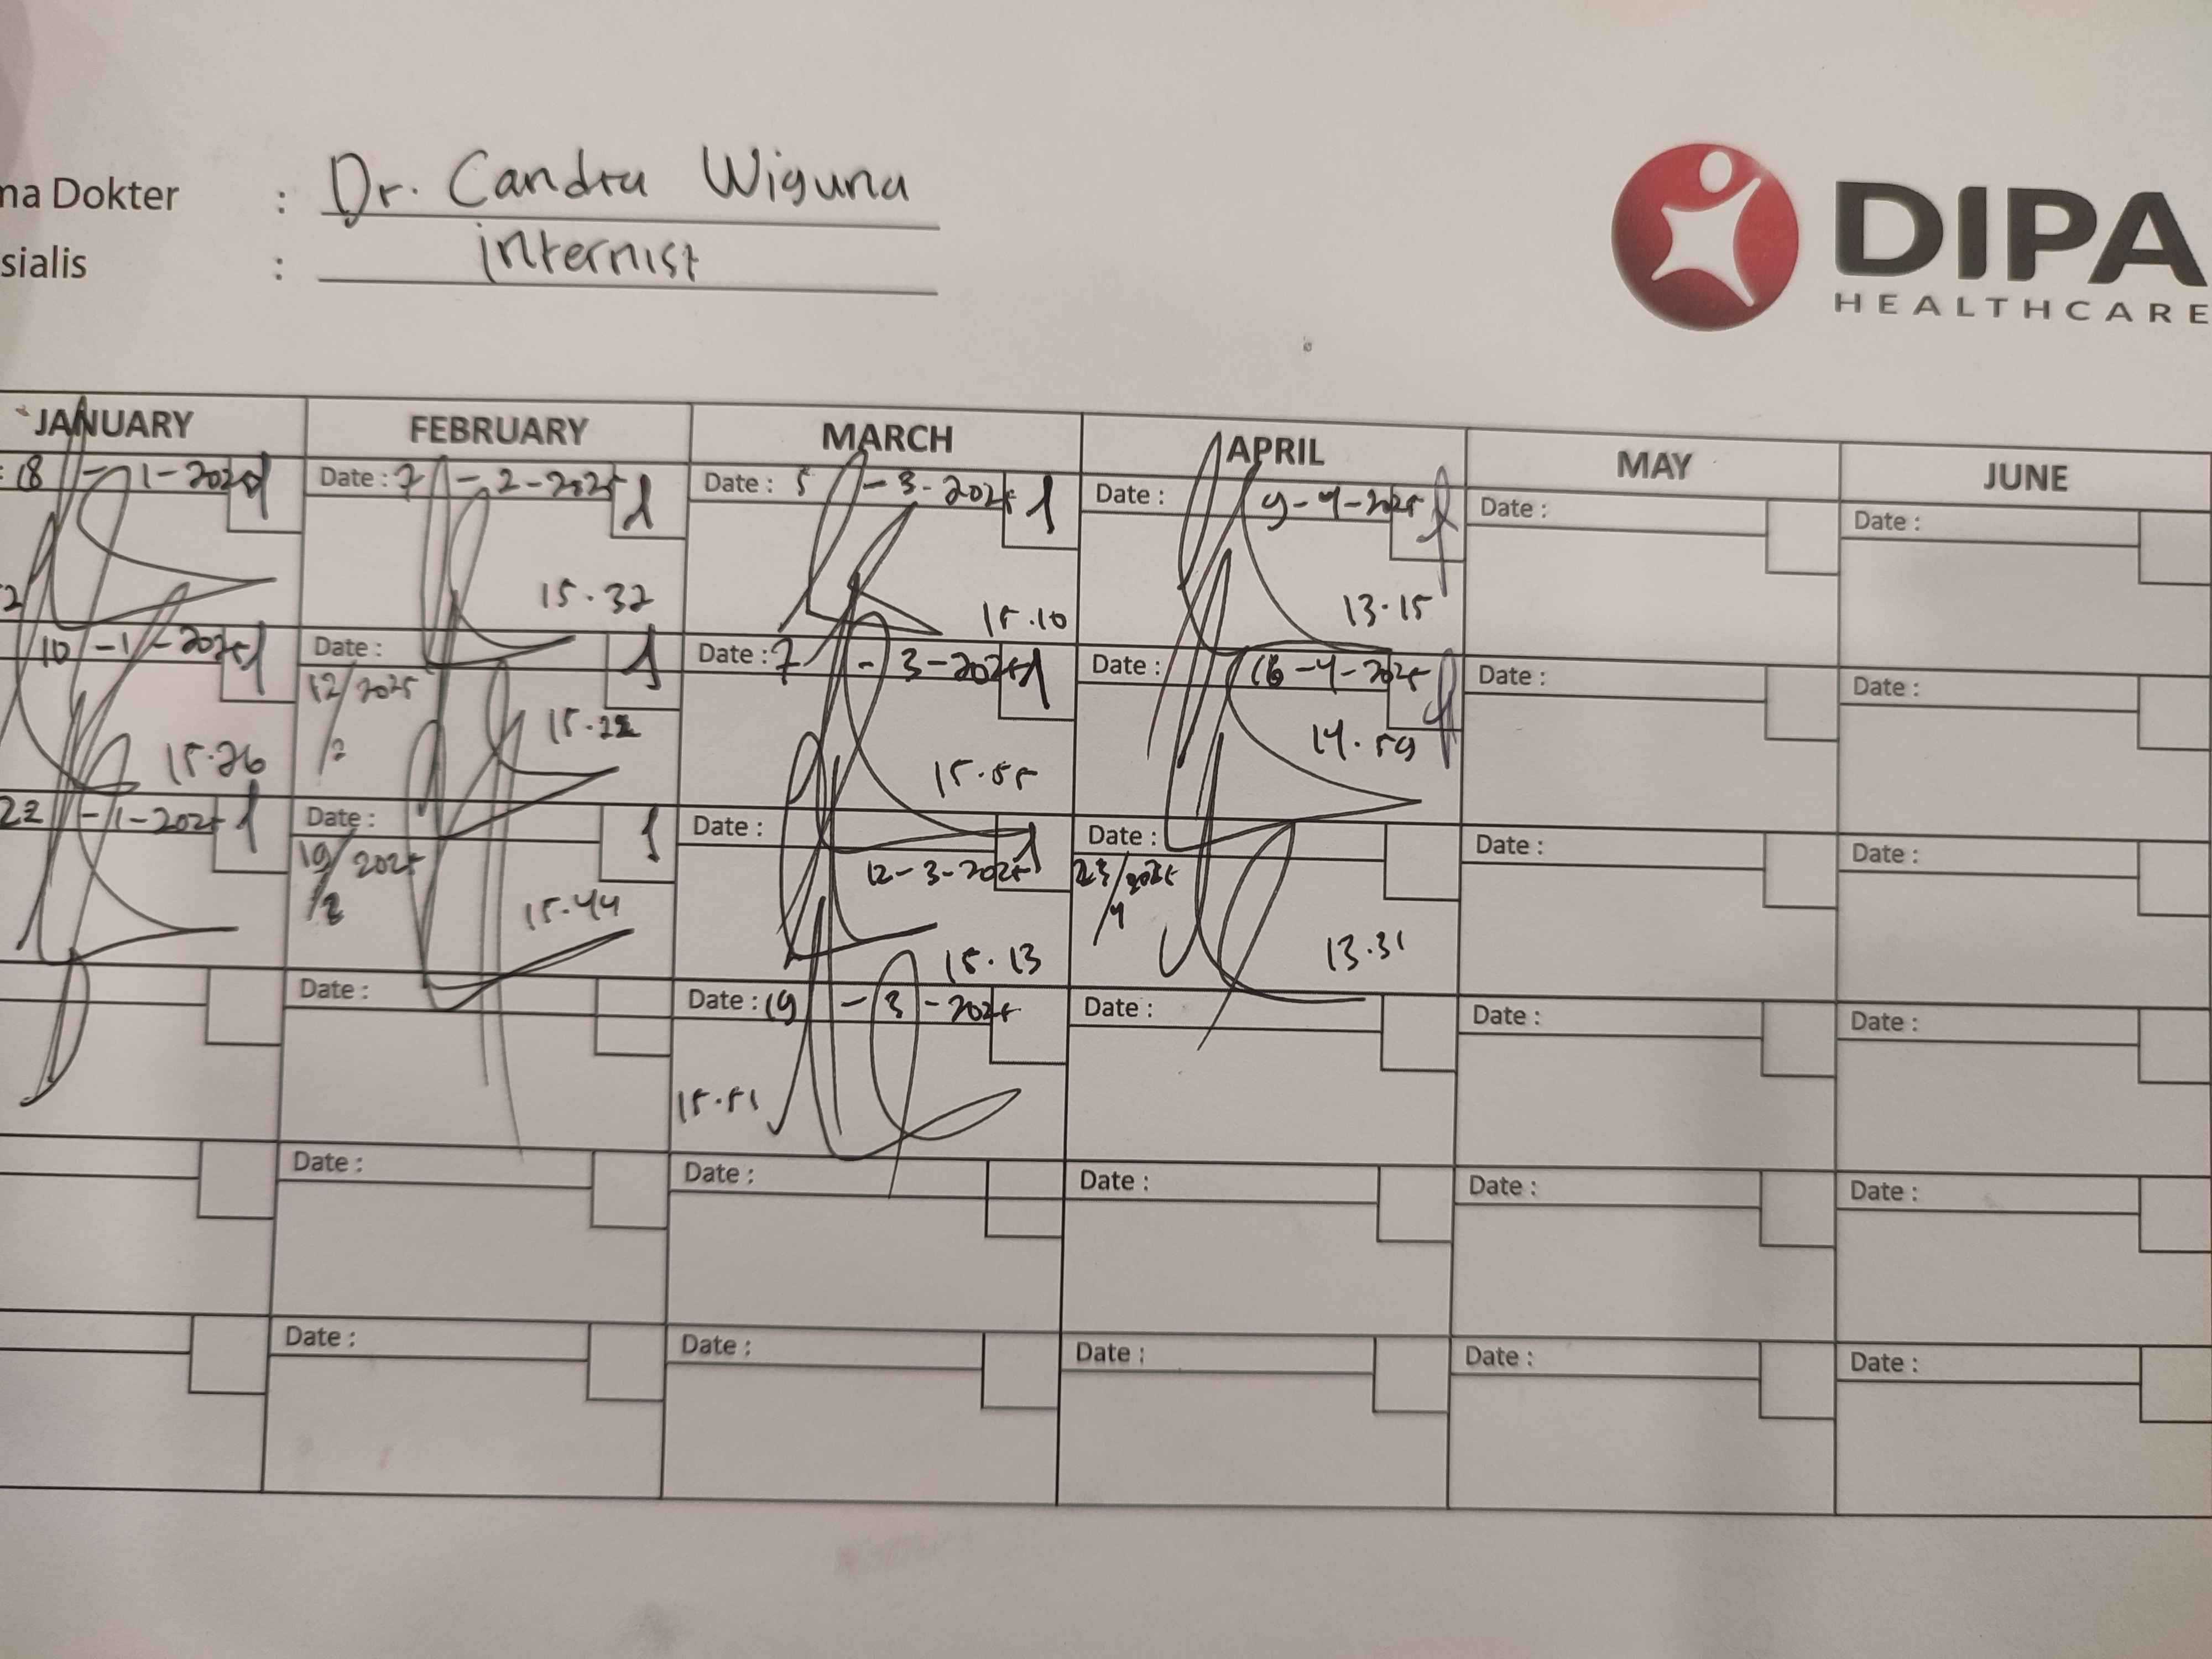 ma Dokter : Dr. Candra Wiguna
sialis : internist
DIPA
HEALTHCARE
JANUARY FEBRUARY MARCH APRIL MAY JUNE
18 -1-2025 Date : 7 -2-2025 Date : 5 -3-2025 Date : 9-4-2025 Date : Date :
15.32 15.10 13.15
10 -1-2025 Date : Date : 7 -3-2025 Date : 16-4-2025 Date : Date :
12/2025
/2
15.26 15.22 15.55 14.59
22 -1-2025 Date : Date : Date : Date : Date :
19/2025 12-3-2025 23/2025
/2 /4
15.44 15.13 13.31
Date : Date : 19 -3-2025 Date : Date : Date :
15.51
Date : Date : Date : Date : Date :
Date : Date : Date : Date : Date :